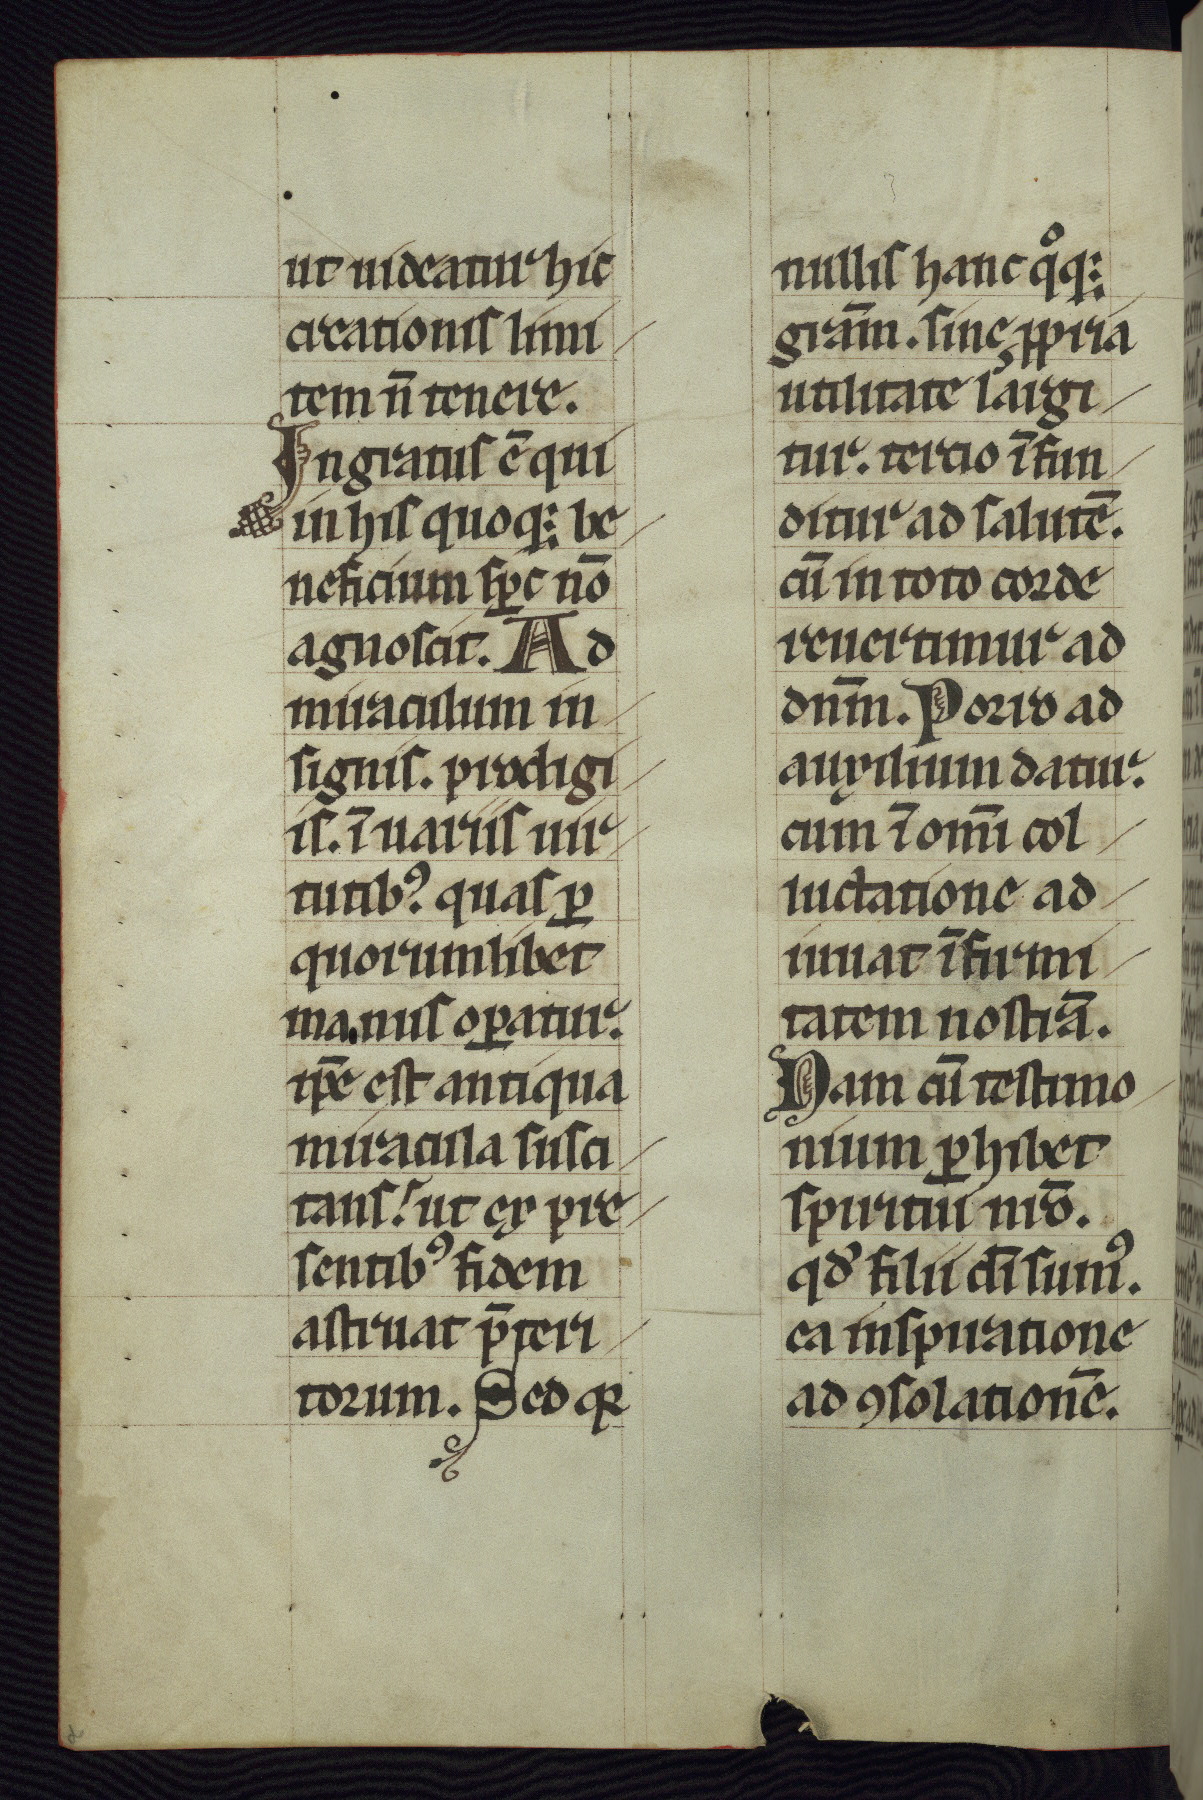 ut uideatur hic
creationis limi
tem n̄ tenere.
Ingratus ē qui
in his quoq; be
neficium sp̄c nō
agnoscit. Ad
miraculum in
signis. prodigi
is. ī uariis uir
tutibꝰ. quas ꝑ
quorumlibet
manus oꝑatur.
ip̄e est antiqua
miracula susci
tans. ut ex pre
sentibꝰ fidem
astruat p̄teri
torum. Sed qꝛ
nullis hanc qͦq;
grām. sine ꝓpria
utilitate largi
tur. tercio īfun
ditur ad salutē.
cū in toto corde
reuertimur ad
dn̄m. Porro ad
auxilium datur.
cum ī om̄i col
luctatione ad
iuuat īfirmi
tatem nostrā.
Nam cū testimo
nium ꝑhibet
spiritui nr̄o.
qd' filii dī sumꝰ.
ea inspiratione
ad ꝯsolationē.